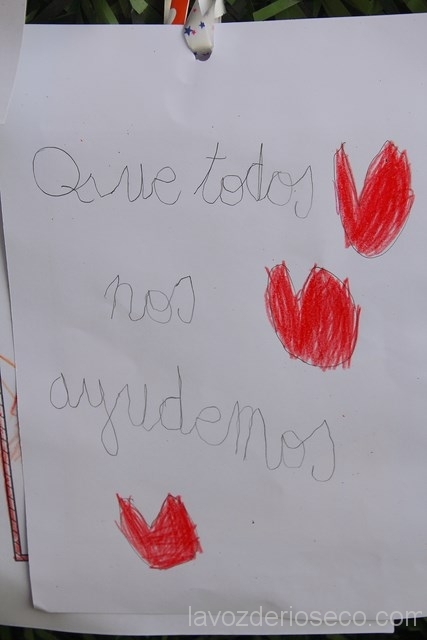 Que todos
nos
ayudemos
lavozderioseco.com